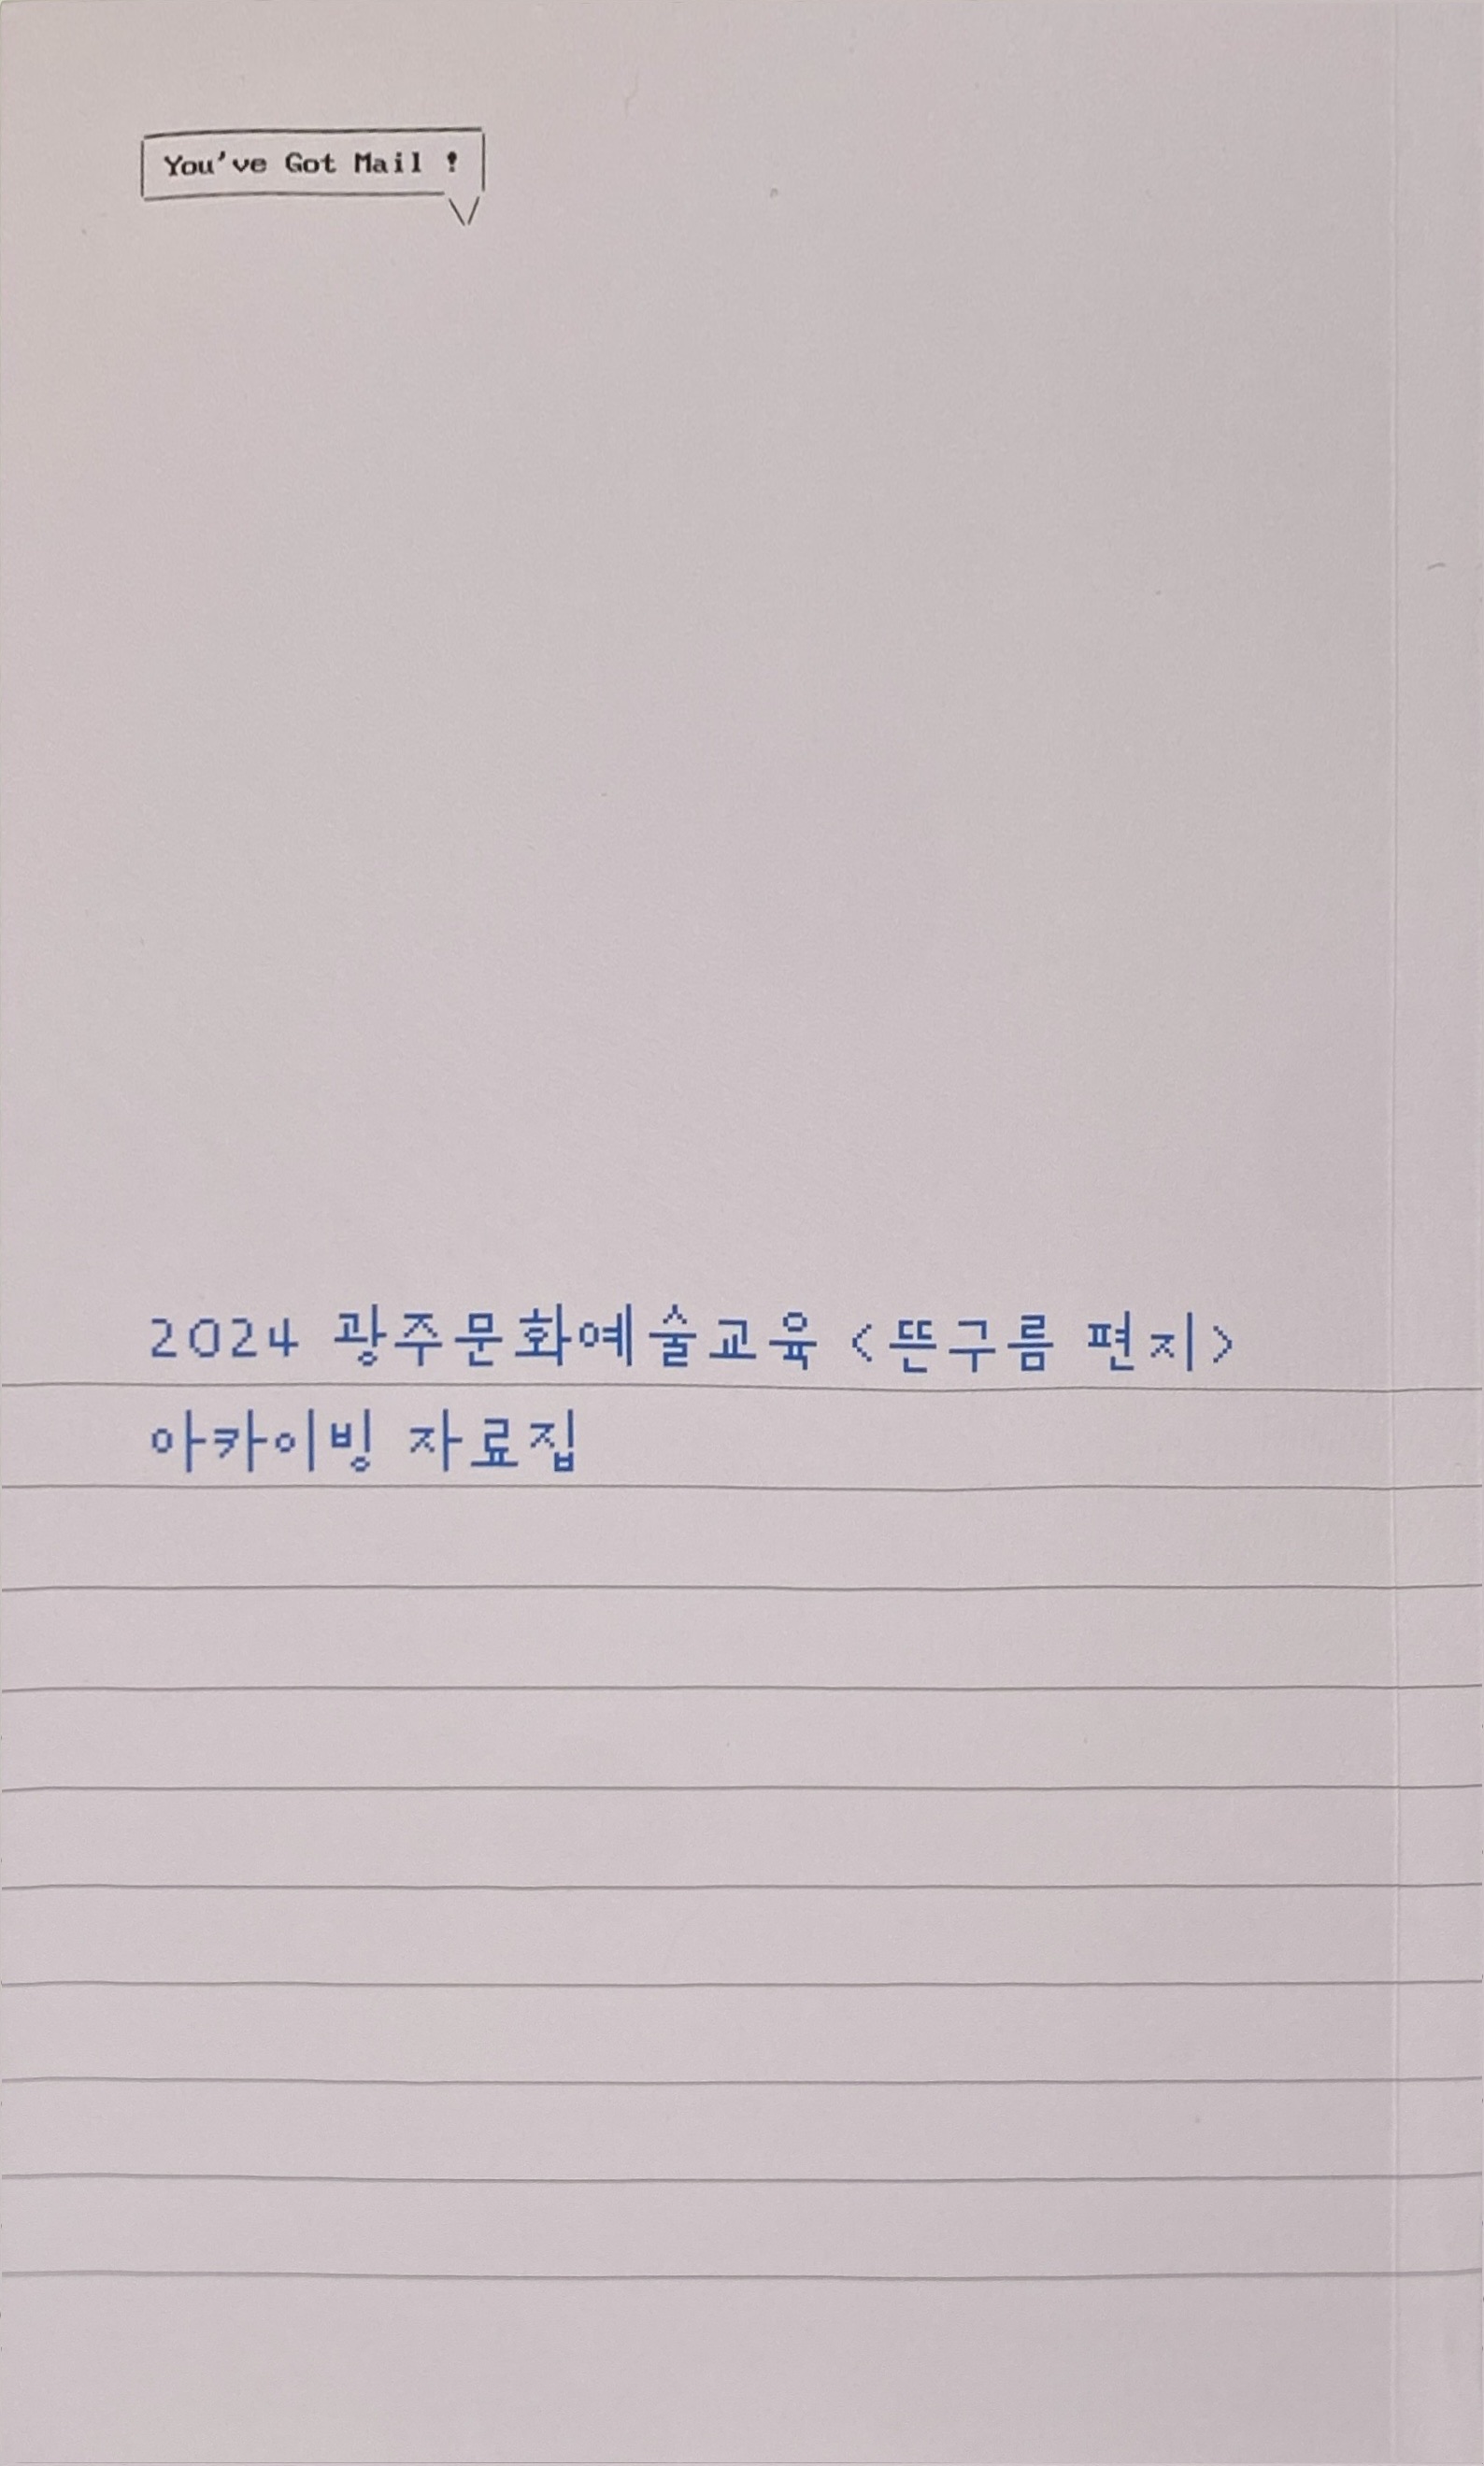 You've Got Mail !
2024 광주문화예술교육 <뜬구름 편지>
아카이빙 자료집